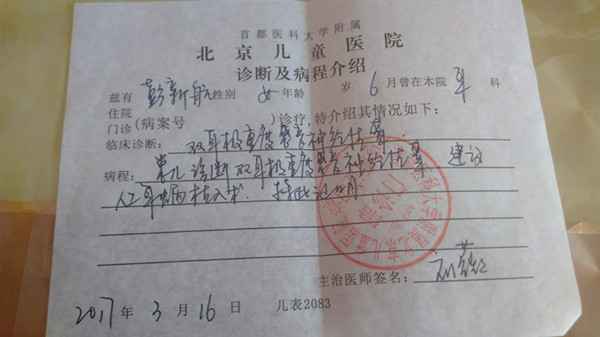 首都医科大学附属
北京儿童医院
诊断及病程介绍
兹有 彭新航 性别 女 年龄 岁 6 月曾在本院 耳 科
住院
门诊(病案号 )诊疗,特介绍其情况如下:
临床诊断: 双耳极重度感音神经性聋
病程: 患儿诊断双耳极重度感音神经性聋 建议
人工耳蜗植入术.
主治医师签名:
2017 年 3 月 16 日 儿表2083